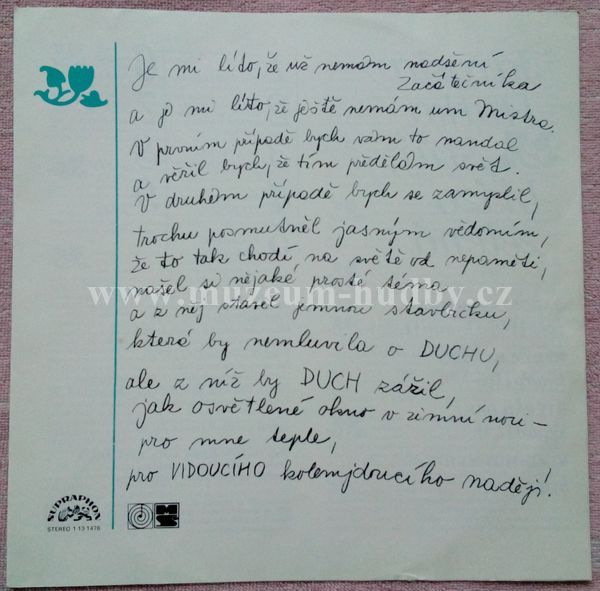 Je mi líto, že už nemám nadšení
začátečníka
a je mi líto, že ještě nemám um Mistra.
V prvním případě bych vám to nandal
a věřil bych, že tím předělám svět.
V druhém případě bych se zamyslil,
trochu posmutněl jasným vědomím,
že to tak chodí na světě od nepaměti,
našel si nějaké prosté téma
www.muzeum-hudby.cz
a z něj stavěl jemnou stavbičku,
která by nemluvila o DUCHU,
ale z níž by DUCH zářil,
jak osvětlené okno v zimní noci –
pro mne teple,
pro VIDOUCÍHO kolemjdoucího nadějí!
SUPRAPHON
STEREO 1 13 1478